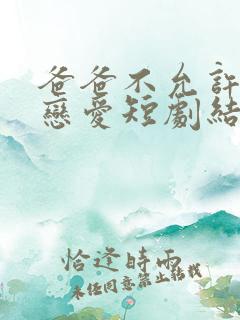 爸爸不允許
戀愛短劇結
恰逢時雨
未經同意禁止轉載